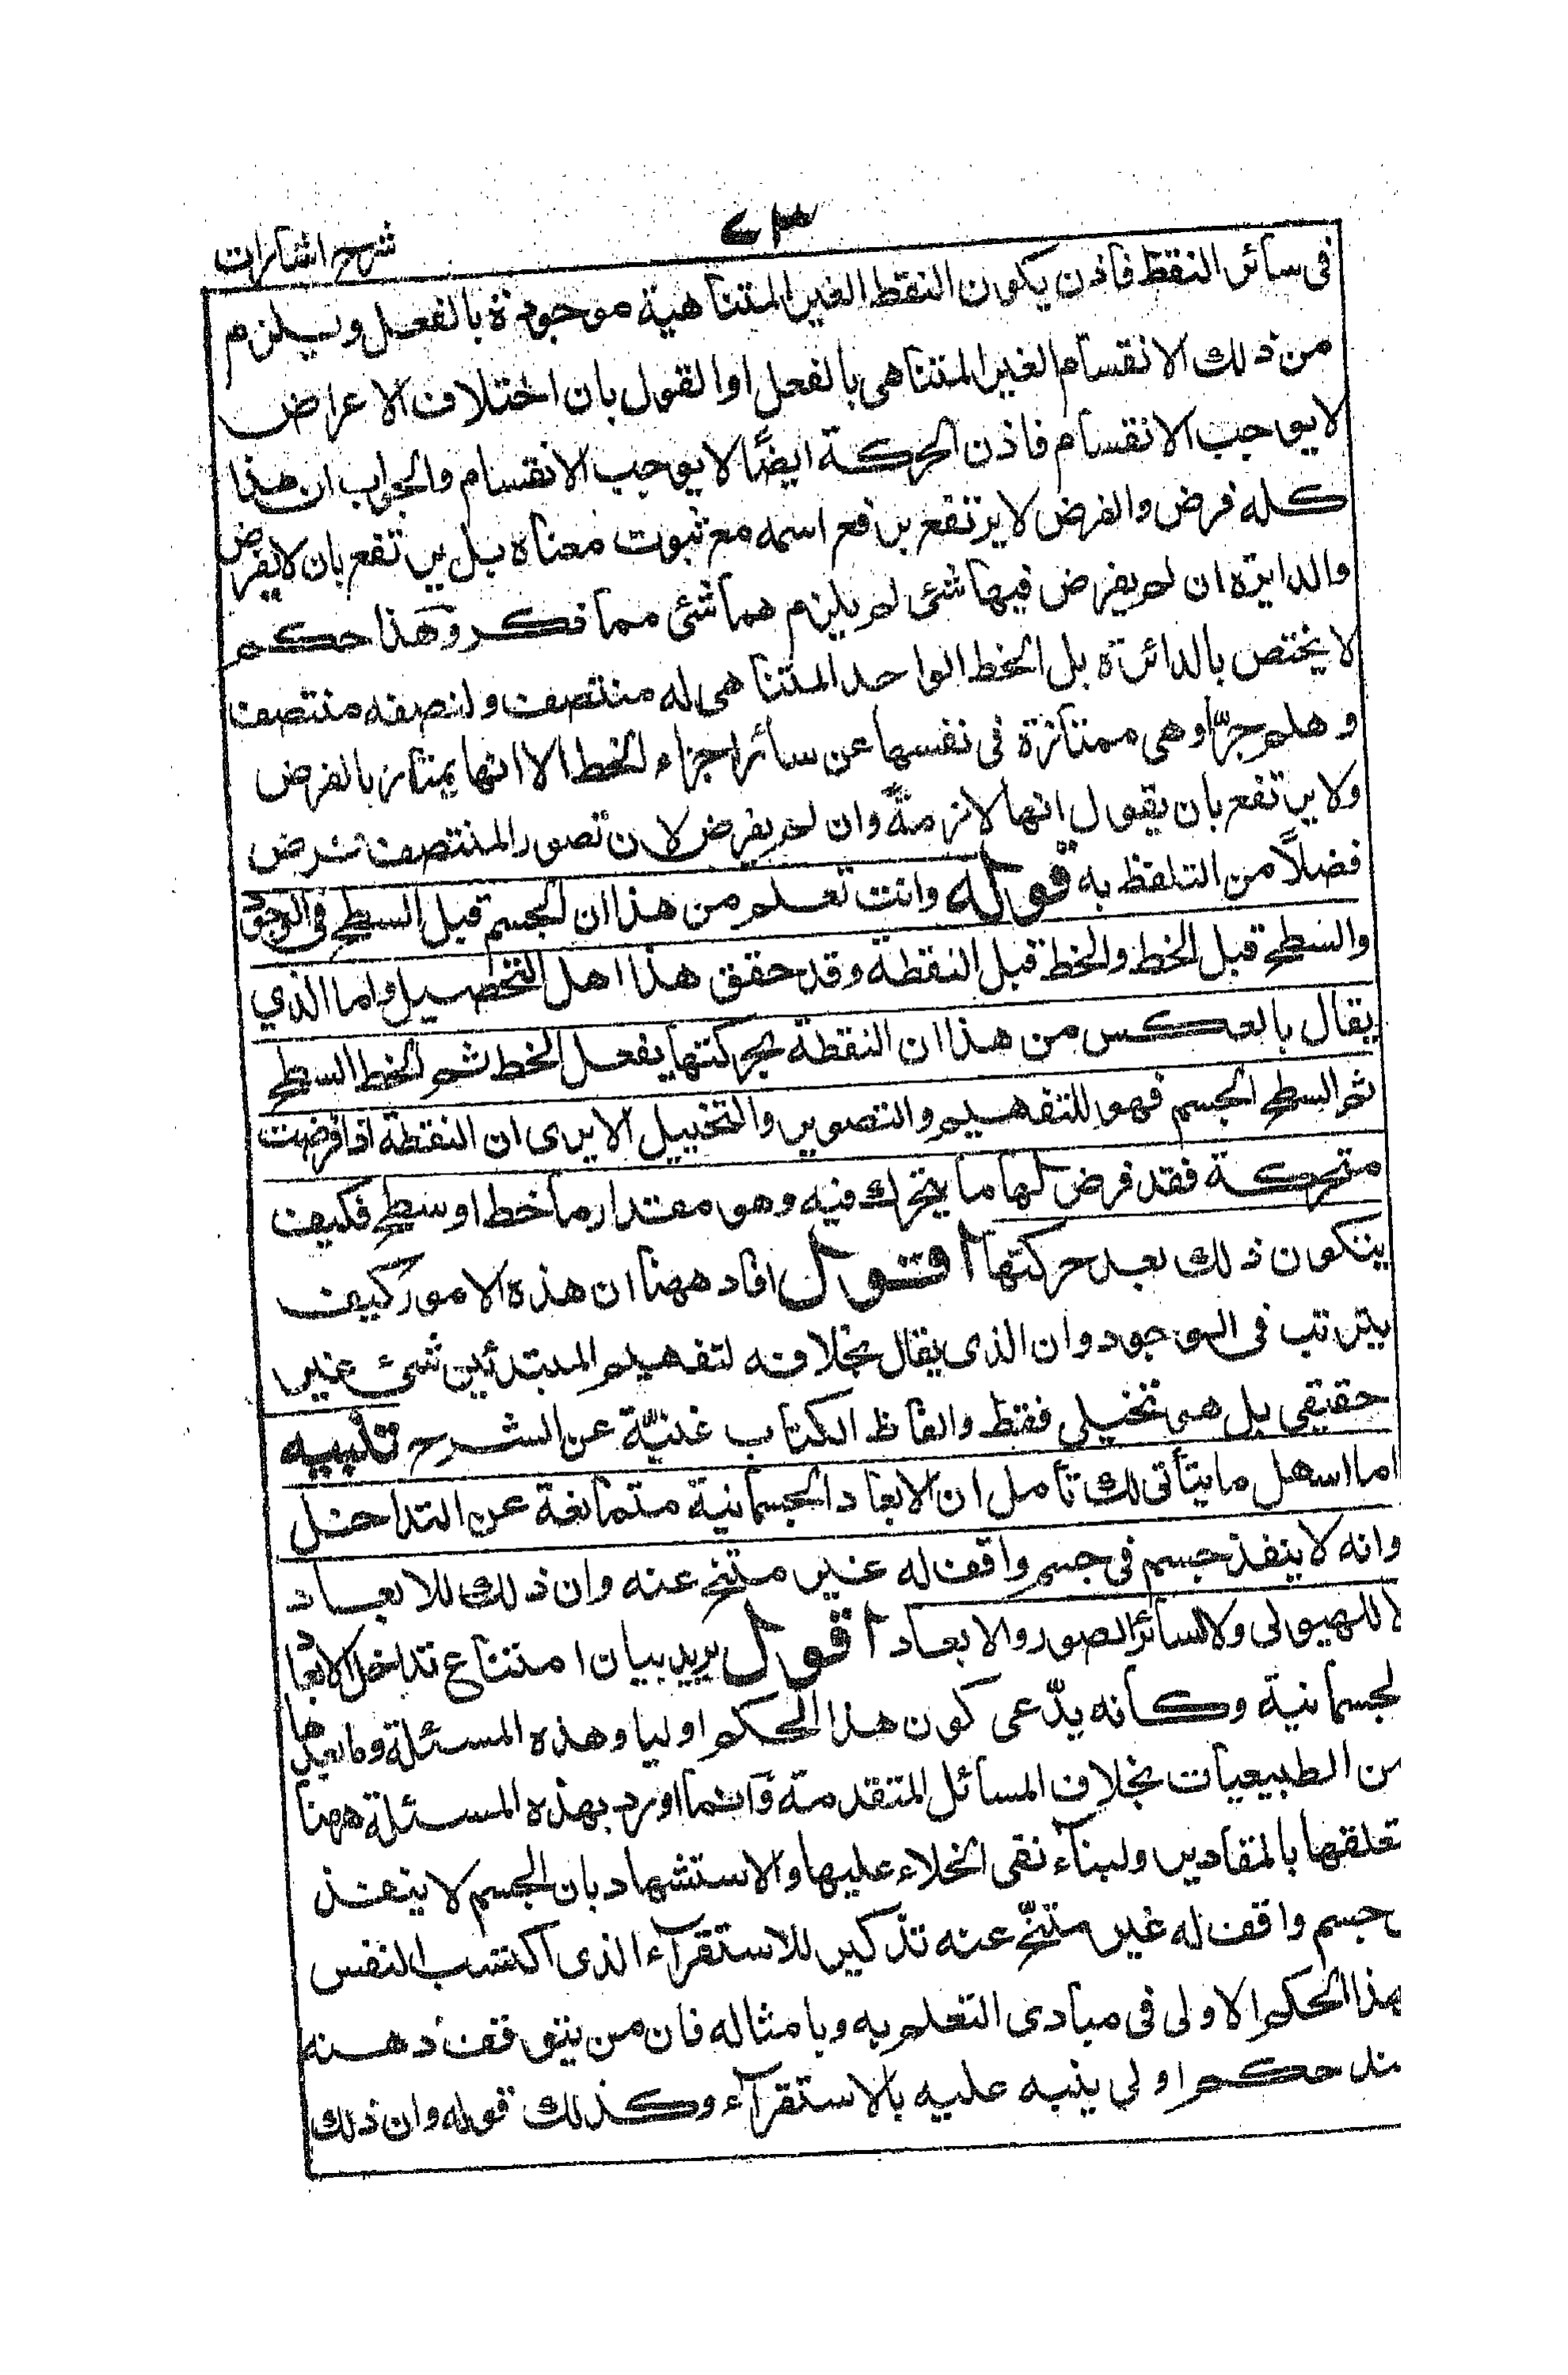 شرح اشارات
٧٣
فى سائر النقط فاذن يكون النقط الغير المتناهية موجودة بالفعل ويلزم
من ذلك الانقسام الغير المتناهى بالفعل او القول بان اختلاف الاعراض
لا يوجب الانقسام فاذن الحركة ايضًا لا يوجب الانقسام والجواب ان هذا
كله فرض والفرض لا يرتفع برفع اسمه مع ثبوت معناه بل يرتفع بان لا يفرض
والدايرة ان لم يفرض فيها شئى لم يلزم هما شئى مما ذكر وهذا حكم
لا يختص بالدائرة بل الخط الواحد المتناهى له منتصف ولنصفه منتصف
وهلم جرّا وهى ممتازة فى نفسها عن سائر اجزاء الخط الا انها يمتاز بالفرض
ولا يرتفع بان يقول انها لازمةٌ وان لم يفرض لان تصور المنتصف فرض
فضلاً من التلفظ به قوله وانت تعلم من هذا ان الجسم قبل السطح فى الوجود
والسطح قبل الخط والخط قبل النقطة وقد حقق هذا اهل التحصيل واما الذي
يقال بالعكس من هذا ان النقطة بحركتها يفعل الخط ثم الخط السطح
ثم السطح الجسم فهو للتفهيم والتصوير والتخييل الا يرى ان النقطة اذا فرضت
متحركة فقد فرض لها ما يتحرك فيه وهو مقدار ما خط او سطح فكيف
يتكون ذلك بعد حركتها اقول افاد ههنا ان هذه الامور كيف
يترتب فى الوجود وان الذى يقال بخلافه لتفهيم المبتدئين شئ غير
حقيقى بل هى تخيلى فقط والفاظ الكتاب غنيّة عن الشرح تنبيه
اما اسهل ما يتأتى لك تأمل ان الابعاد الجسمانية متمانعة عن التداخل
وانه لا ينفذ جسم فى جسم واقف له غير متنح عنه وان ذلك للابعاد
لا للهيولى ولا لسائر الصور والابعاد اقول يريد بيان امتناع تداخل الابعاد
لجسمانية وكانه يدّعى كون هذا الحكم اوليا وهذه المسئلة وما بعدها
من الطبيعيات بخلاف المسائل المتقدمة وانما اورد بهذه المسئلة ههنا
تعلقها بالمقادير ولبناء نفى الخلاء عليها والاستشهاد بان الجسم لا ينفذ
جسم واقف له غير متنحّ عنه تذكير للاستقراء الذى اكتسب النفس
هذا الحكم الاولى فى مبادى التعلم به وبامثاله فان من يتوقف ذهنه
عند حكم اولي ينبه عليه بالاستقراء وكذلك قوله وان ذلك